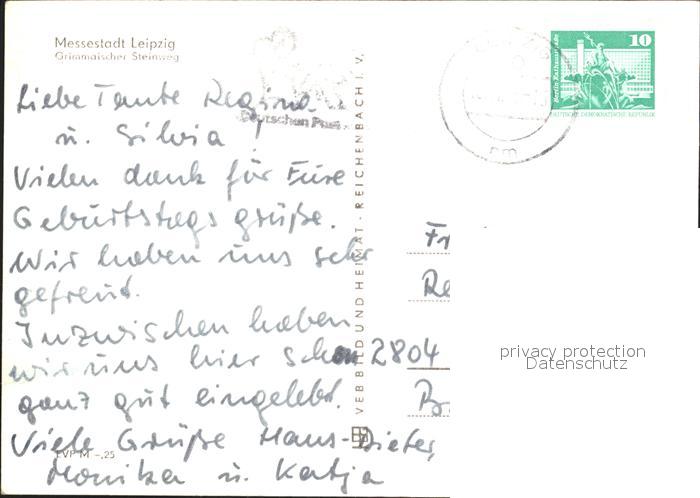 Messestadt Leipzig
Grimmaischer Steinweg
Liebe Tante Regina
u. Silvia !
Vielen dank für Eure
Geburtstags grüße.
Wir haben uns sehr
gefreut.
Inzwischen haben
wir uns hier schon
ganz gut eingelebt.
Viele Grüße Hans-Dieter,
Monika u. Katja
EVP M -,25
Deutschen Post
VEB BILD UND HEIMAT · REICHENBACH I. V.
nm
10
Berlin Rathausstraße
DEUTSCHE DEMOKRATISCHE REPUBLIK
Fr
Re
2804
B
privacy protection
Datenschutz